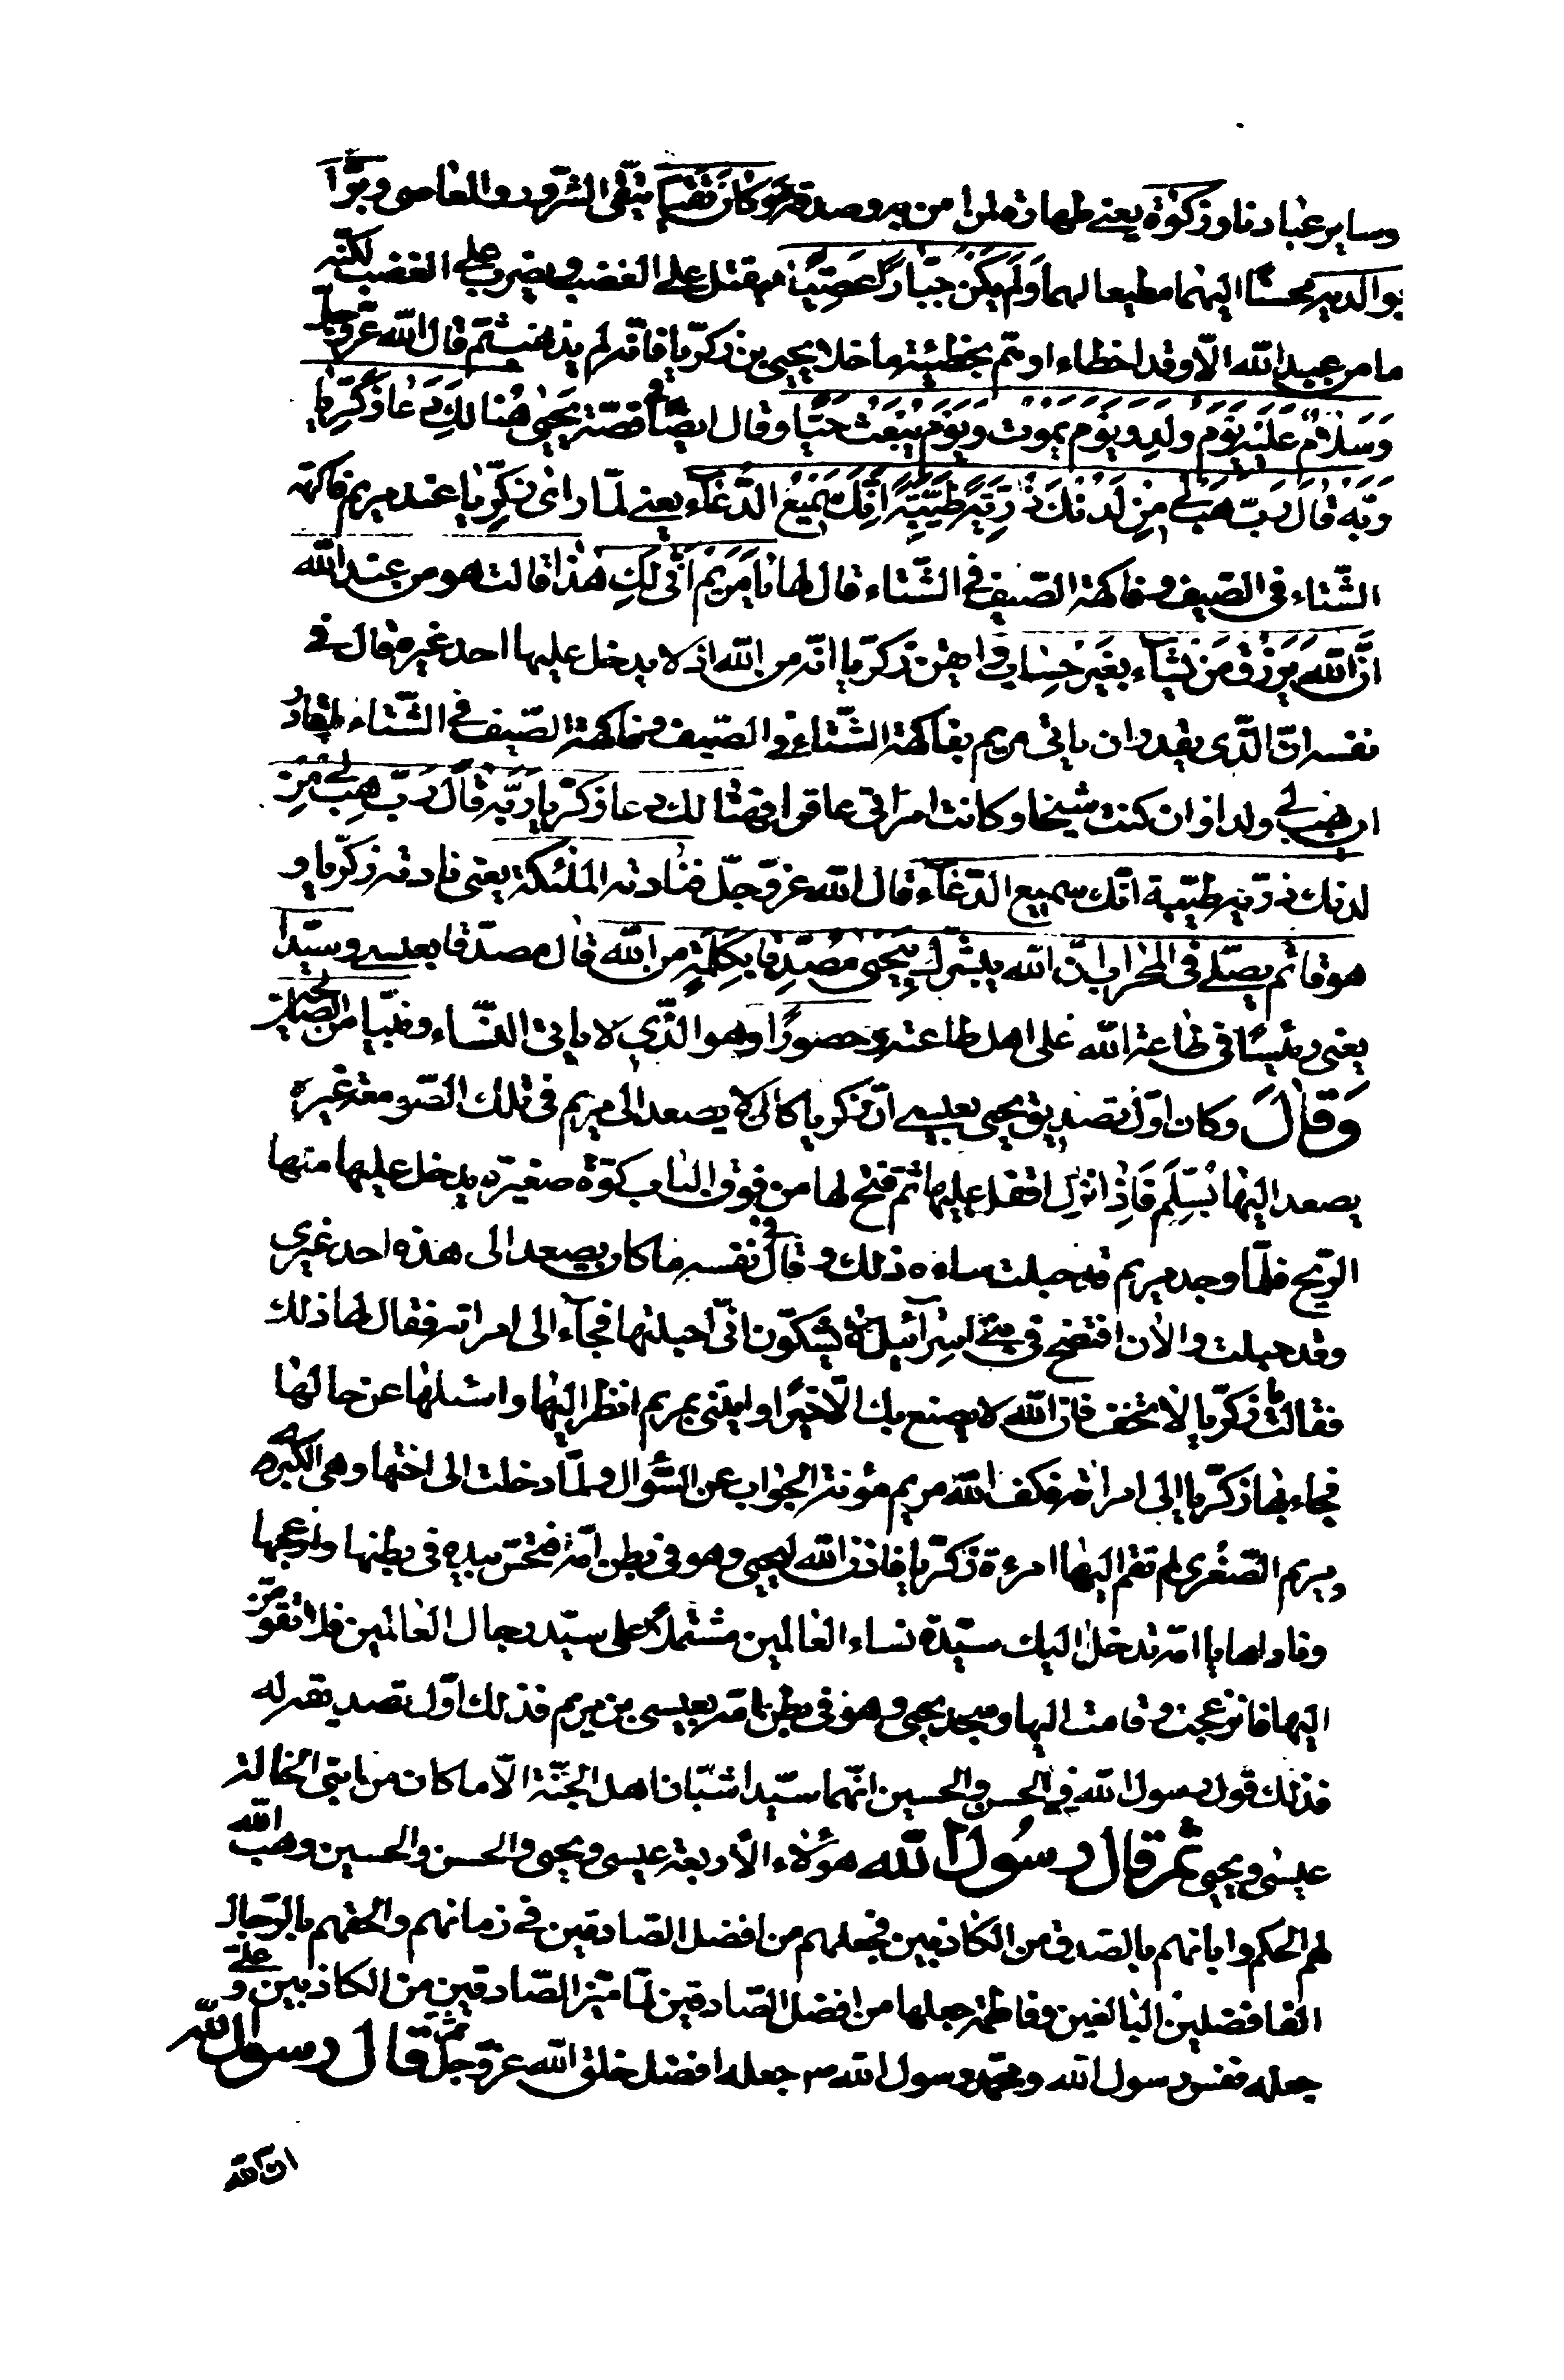 وساير عبادنا وزكوة يعنى طهارة لمن امن به وصدقه وكان تقيا يتقى الشرور والمعاصى وبرّا
بوالديه محسنًا اليهما مطيعا لهما وَلَمْ يَكُنْ جَبّارًا عَصِيًّا يقتل على الغضب ويضرب على الغضب لكنّه
ما من عبد لله الّا وقد اخطاء او همّ بخطيئة ما خلا يحيى بن زكرّيا فانّه لم يذنب ثم قال الله عزّ وجلّ
وَسَلامٌ عَلَيْهِ يَوْمَ وُلِدَ وَيَوْمَ يَمُوتُ وَيَوْمَ يُبْعَثُ حَيًّا وقال ايضًا فى قصّة يَحْيى هُنالِكَ دَعا زَكَرِّيا
رَبَّهُ قالَ رَبِّ هَبْ لى مِنْ لَدُنْكَ ذُرِّيَّةً طَيِّبَةً اِنَّكَ سَمِيعُ الدُّعآء يعنى لمّا راى زكرّيا عند مريم فاكهة
الشّتاء فى الصّيف وفاكهة الصّيف فى الشّتاء قال لها يا مَرْيَمُ اَنّى لَكِ هذا قالت هو من عند الله
اِنَّ اللهَ يَرْزُقُ مَنْ يَشآء بِغَيْرِ حِسابٍ وايقن زكرّيا انّه من الله اذ لا يدخل عليها احد غيره قال فى
نفسه انّ الّذى يقدر ان ياتى مريم بفاكهة الشّتاء فى الصّيف وفاكهة الصّيف فى الشّتاء لقادر
ان يهب لى ولدا وان كنت شيخا وكانت امراتى عاقرا فهنالك دعا زكرّيا رَبّه قالَ رَبِّ هَبْ لى مِنْ
لدنك ذرّية طيّبة انّك سميع الدّعآء قال الله عزّ وجلّ فنادته الملئكة يعنى نادته زكرّيا و
هو قائم يصلّى فى المحراب انّ الله يبشّرك بِيَحْيى مُصَدِّقا بِكَلِمَةٍ من الله قال مصدّقا بعيسى وسيّدا
يعنى رئيسًا فى طاعة الله على اهل طاعته وحصورًا وهو الّذى لا ياتى النّساء ونبيّا من الصّالحين
وَقالَ وكان اوّل تصديق يحيى بعيسى انّ زكريا كان لا يصعد الى مريم فى تلك الصّومعة غيره
يصعد اليها بُسَلَّم فَاِذا نزل اقفل عليها ثم فتح لها من فوق الباب كوّة صغيرة يدخل عليها منها
الرّيح فلمّا وجد مريم قد حبلت ساءه ذلك وقال فى نفسه ما كان يصعد الى هذه احد غيرى
وقد حبلت والآن افتضح فى بنى اسرآئيل لا يشكّون انّى احبلتها فجآء الى امراته فقال لها ذلك
فقالت يا زكرّيا لا تخف فان الله لا يصنع بك الّا خيرًا وايتنى بمريم انظر اليها واسئلها عن حالها
فجاء بها زكرّيا الى امراته فكف الله مريم مؤنة الجواب عن السّؤال ولمّا دخلت الى اختها وهى الكبرى
ومريم الصّغرى لم تقم اليها امرءة زكرّيا فاذن الله ليحيى وهو فى بطن امّه فنخس بيده فى بطنها وازعجها
وناداها يا امّه تدخل اليك سيّدة نساء العالمين مشتملة على سيّد رجال العالمين فلا تقومين
اليها فانزعجت وقامت اليها وسجد يحيى وهو فى بطن امّه بعيسى بن مريم فذلك اوّل تصديقه له
فذلك قول رسول الله فى الحسن والحسين انّهما سيّدا شبّان اهل الجنّة الّا ما كان من ابنى الخالة
عيسى ويحيى ثم قال رسُول الله هؤلاء الاربعة عيسى ويحيى والحسن والحسين وهب الله
لهم الحكم وابانهم بالصدق من الكاذبين فجعلهم من افضل الصّادقين فى زمانهم والحقهم بالرّجال
الفاضلين البالغين وفاطمة جعلها من افضل الصّادقين لمّا ميّز الصّادقين من الكاذبين وعلىّ
جعله نفس رسول الله ومحمّد رسول الله ص جعله افضل خلق الله عزّ وجلّ ثم قال رسول الله